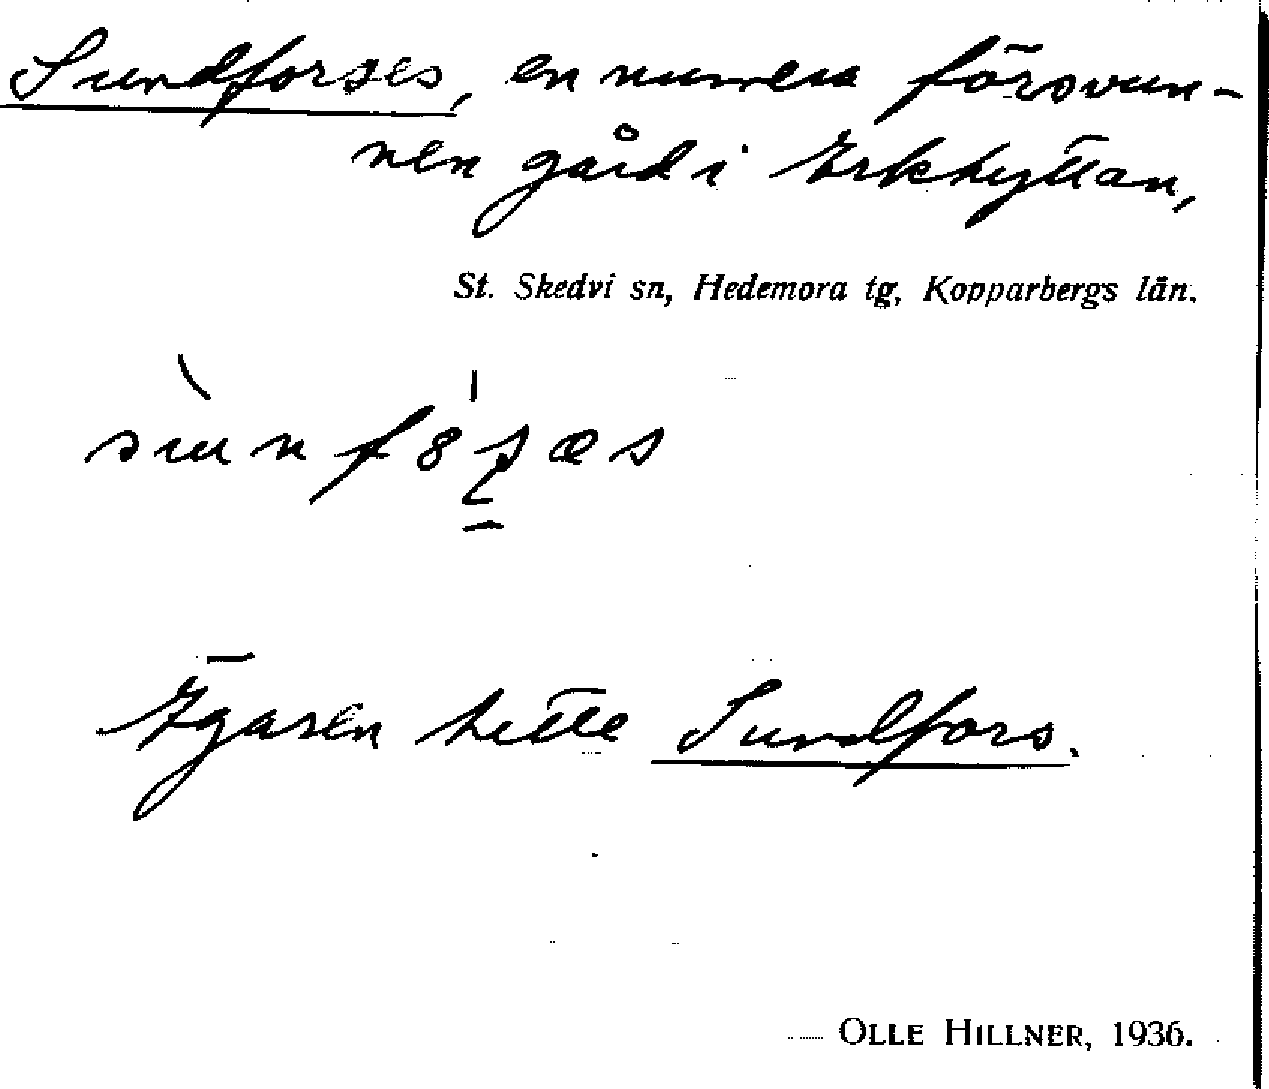 Sundforses, en numera försvun-
nen gård i Erkhyttan,
St. Skedvi sn, Hedemora tg, Kopparbergs län.
Ägaren hette Sundfors.
OLLE HILLNER, 1936.